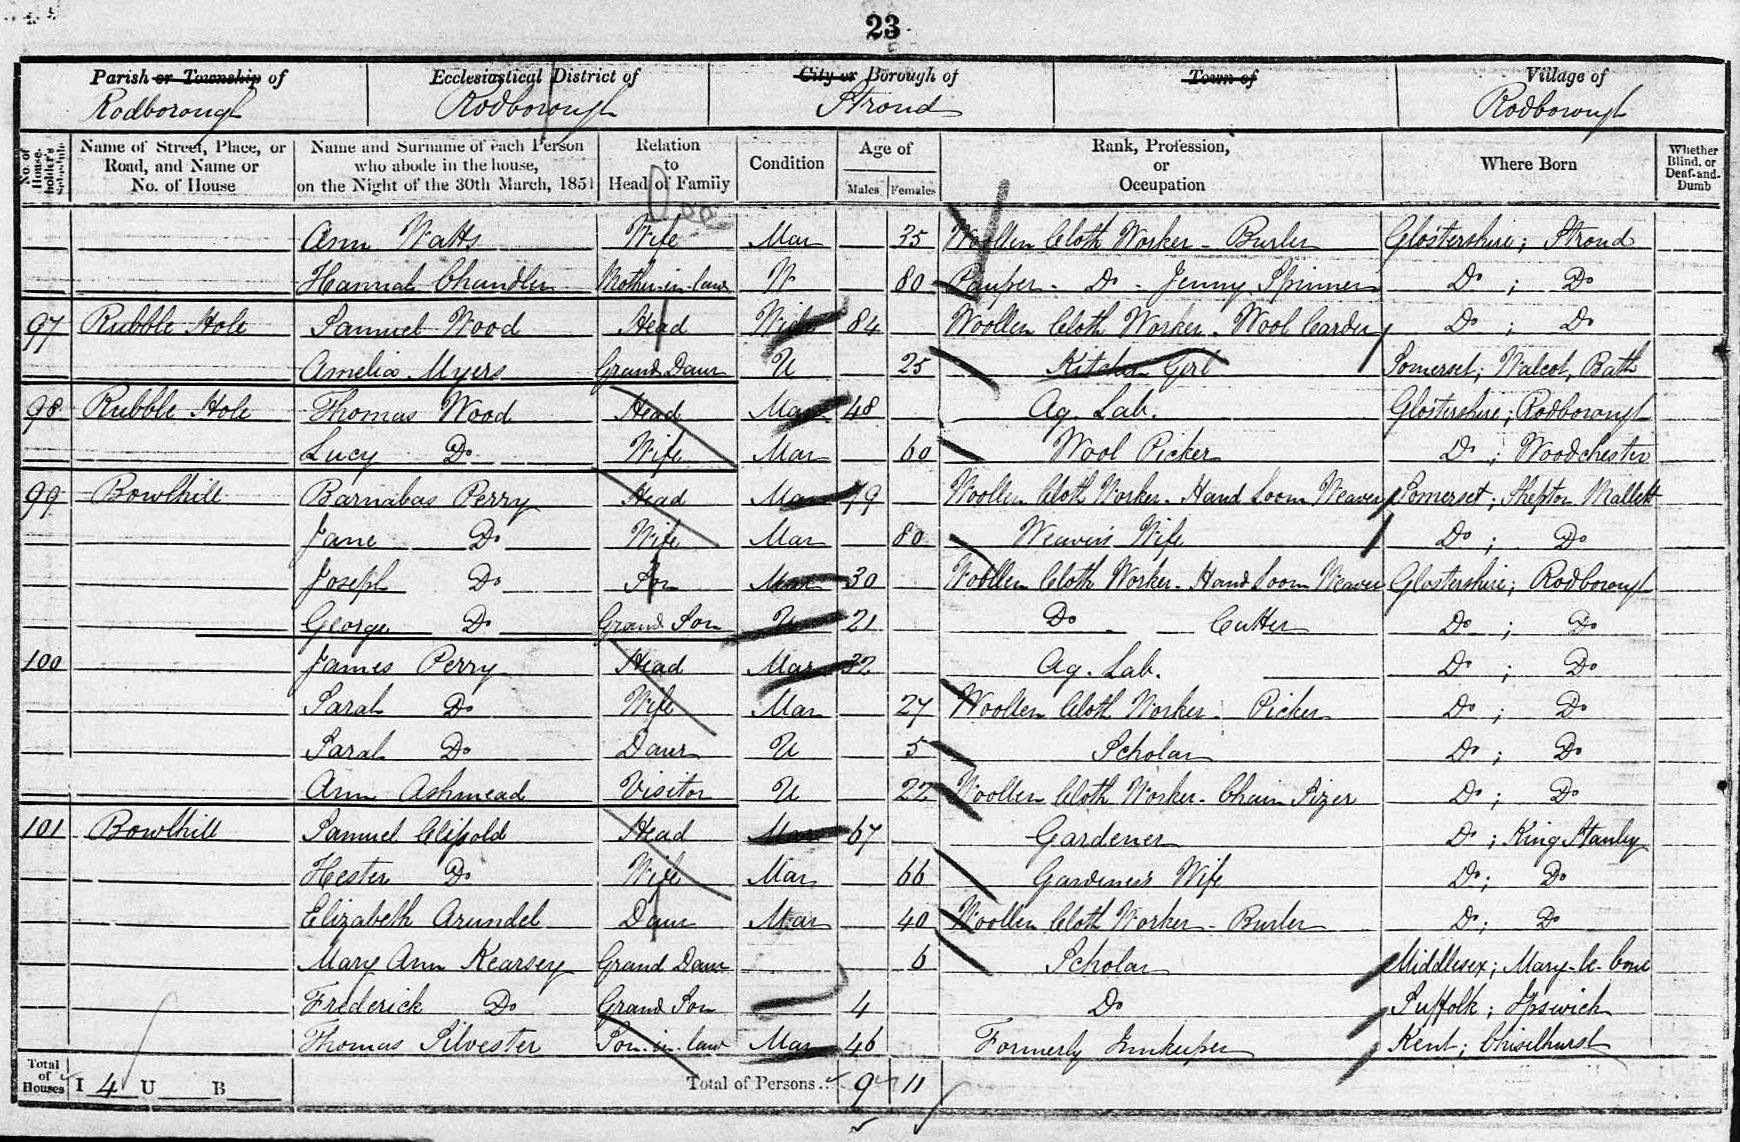 23
Parish or Township of Ecclesiastical District of City or Borough of Town of Village of
Rodborough Rodborough Stroud Rodborough
No. of House-holder's Schedule
Name of Street, Place, or Road, and Name or No. of House
Name and Surname of each Person who abode in the house, on the Night of the 30th March, 1851
Relation to Head of Family
Condition
Age of
Males Females
Rank, Profession, or Occupation
Where Born
Whether Blind, or Deaf-and-Dumb
Ann Watts Wife Mar 35 Woollen Cloth Worker - Burler Glostershire; Stroud
Hannah Chandler Mother-in-law W 80 Pauper - Do - Jenny Spinner Do ; Do
97 Rubble Hole Samuel Wood Head 84 Woollen Cloth Worker - Wool Carder Do ; Do
Amelia Myers Grand Daur U 25 Kitchen Girl Somerset; Walcot, Bath
98 Rubble Hole Thomas Wood Head Mar 48 Ag. Lab. Glostershire; Rodborough
Lucy Do Wife Mar 60 Wool Picker Do ; Woodchester
99 Bowlhill Barnabas Perry Head Mar 79 Woollen Cloth Worker - Hand Loom Weaver Somerset; Shepton Mallett
Jane Do Wife Mar 80 Weaver's Wife Do ; Do
Joseph Do Son 30 Woollen Cloth Worker - Hand Loom Weaver Glostershire; Rodborough
George Do Grand Son U 21 Do Cutter Do ; Do
100 James Perry Head Mar 32 Ag. Lab. Do ; Do
Sarah Do Wife Mar 27 Woollen Cloth Worker - Picker Do ; Do
Sarah Do Daur U 5 Scholar Do ; Do
Ann Ashmead Visitor U 22 Woollen Cloth Worker - Chain Sizer Do ; Do
101 Bowlhill Samuel Clissold Head Mar 67 Gardener Do ; King Stanley
Hester Do Wife Mar 66 Gardener's Wife Do; Do
Elizabeth Arundel Daur Mar 40 Woollen Cloth Worker - Burler Do; Do
Mary Ann Kearsey Grand Daur 6 Scholar Middlesex; Mary-le-bone
Frederick Do Grand Son 4 Do Suffolk; Ipswich
Thomas Silvester Son-in-law Mar 46 Formerly Innkeeper Kent; Chiselhurst
Total of Houses I 4 U B Total of Persons 9 11